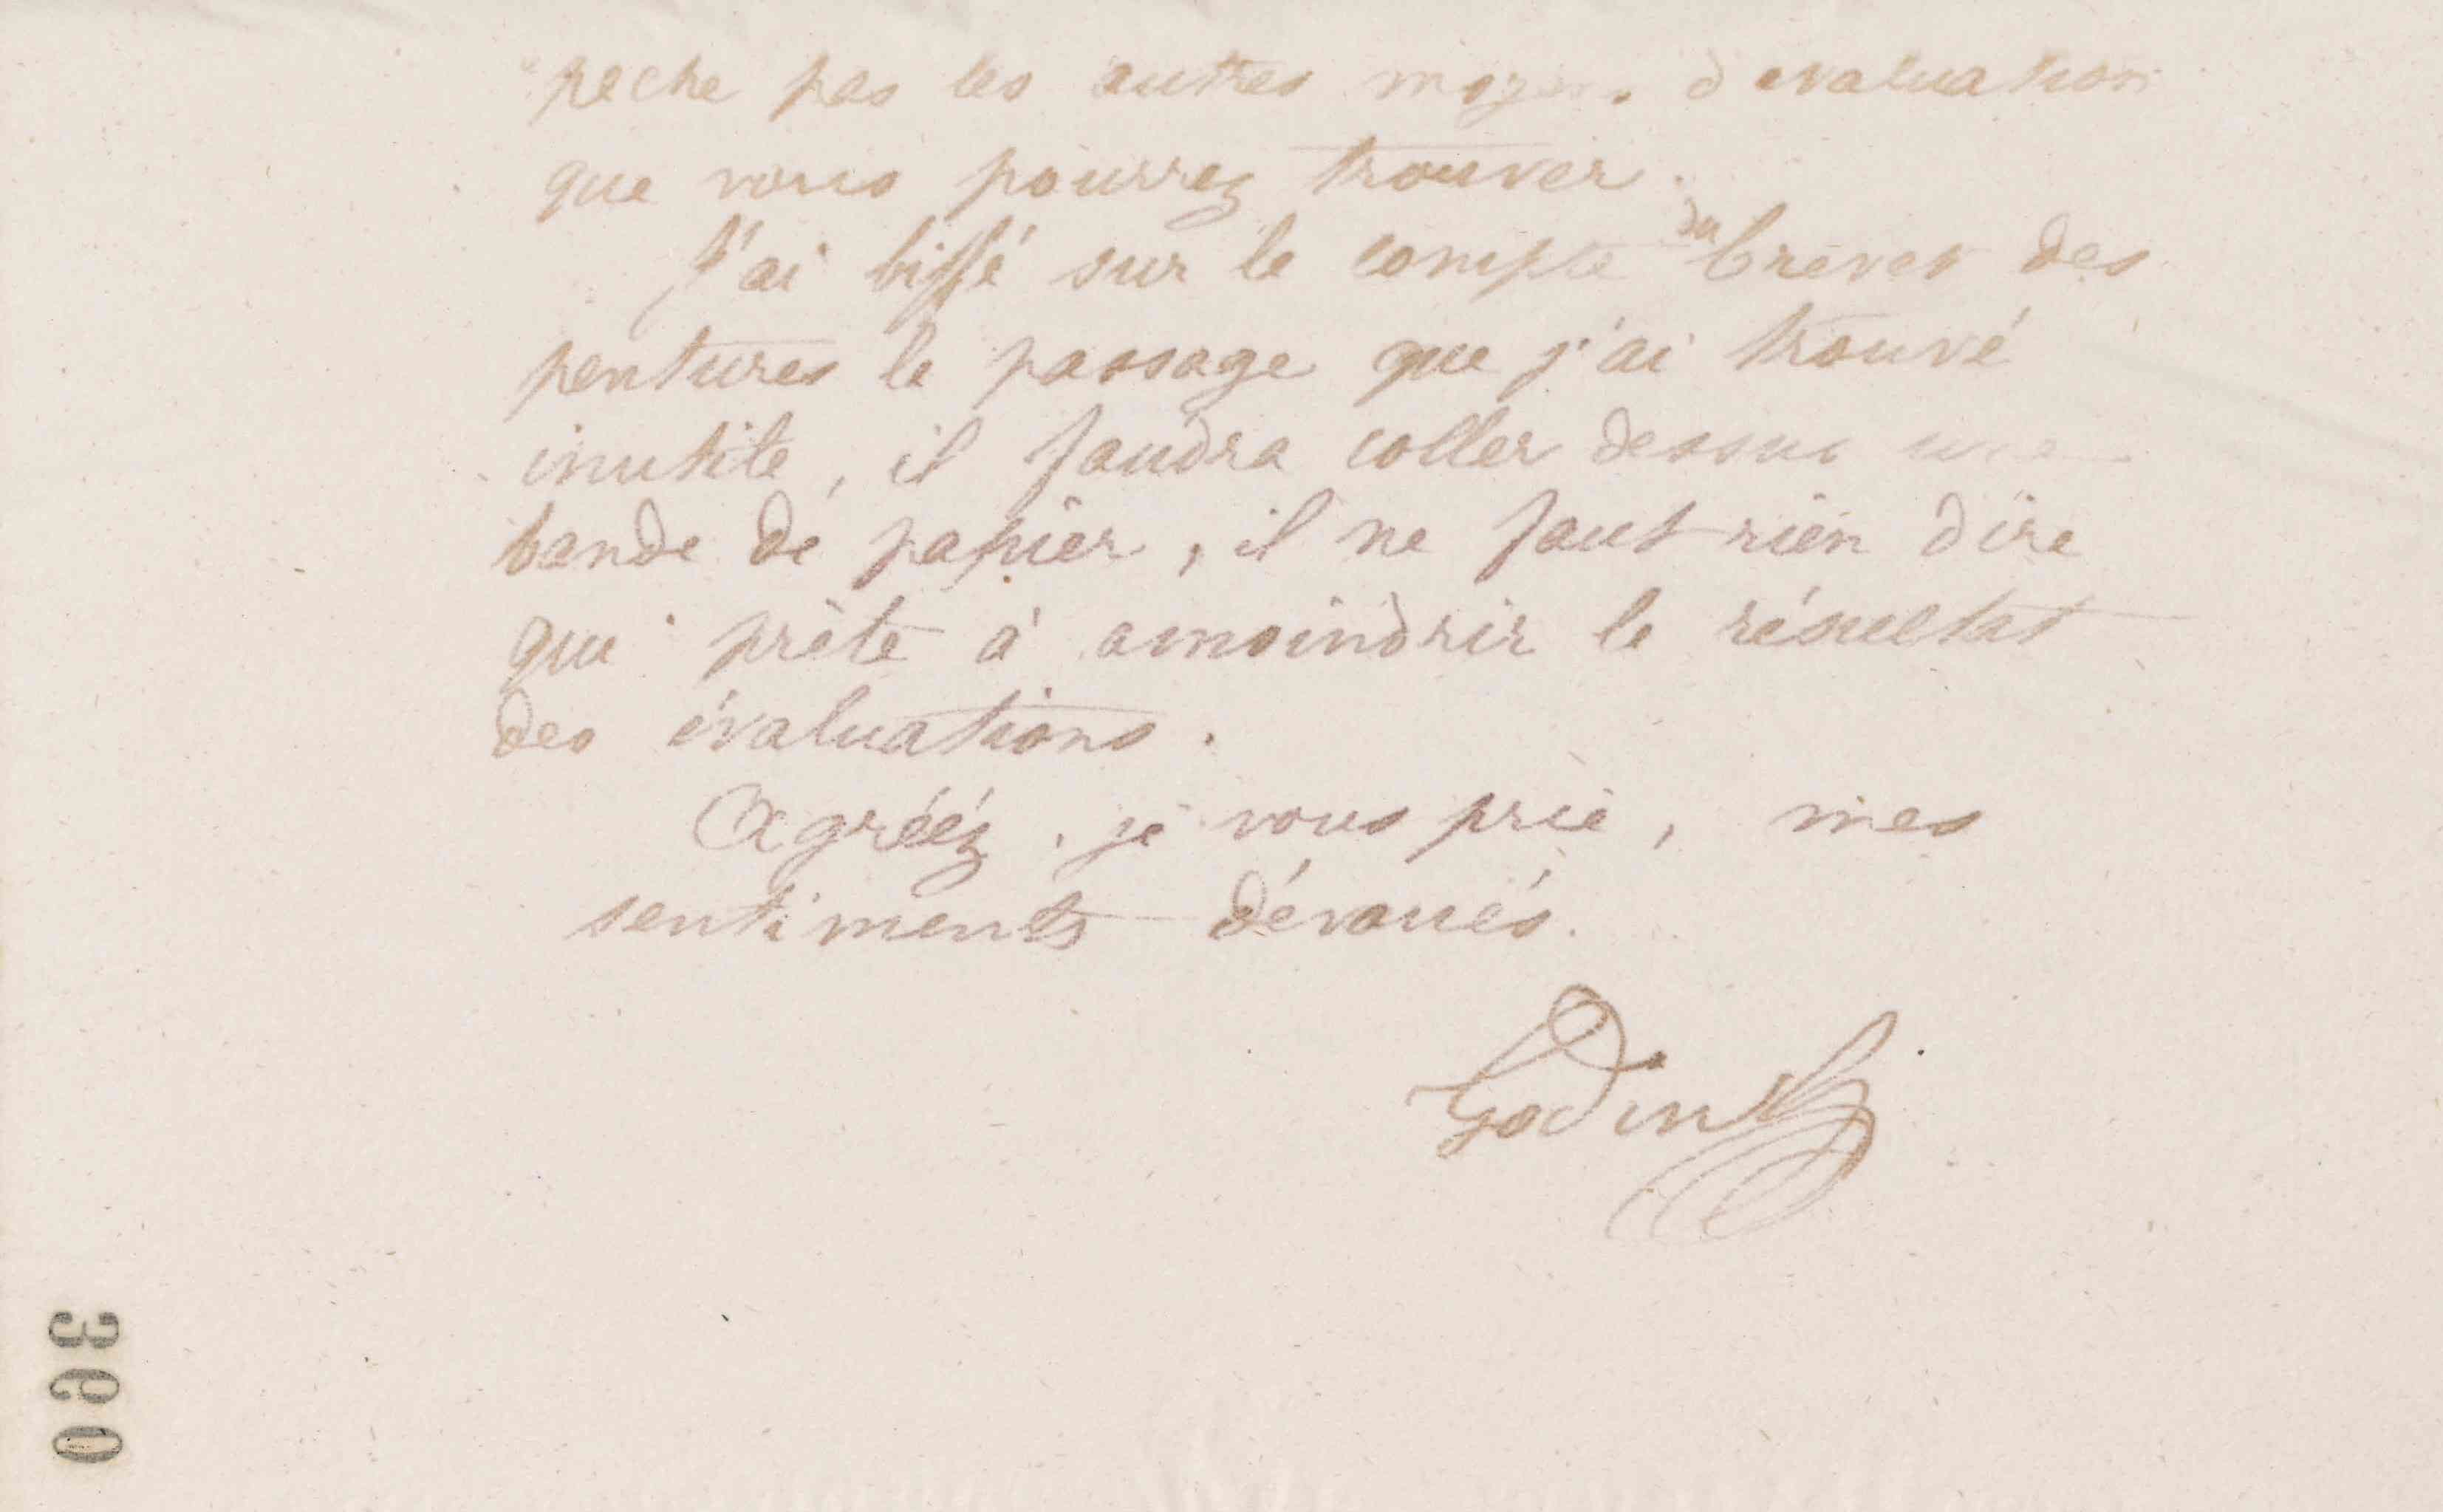 pêche pas les autres moyens d'évaluation
que vous pourrez trouver.
J'ai biffé sur le compte du brevet des
pentures le passage que j'ai trouvé
inutile, il faudra coller dessus une
bande de papier, il ne faut rien dire
qui prête à amoindrir le résultat
des évaluations.
Agréez, je vous prie, mes
sentiments dévoués.
Godin
360